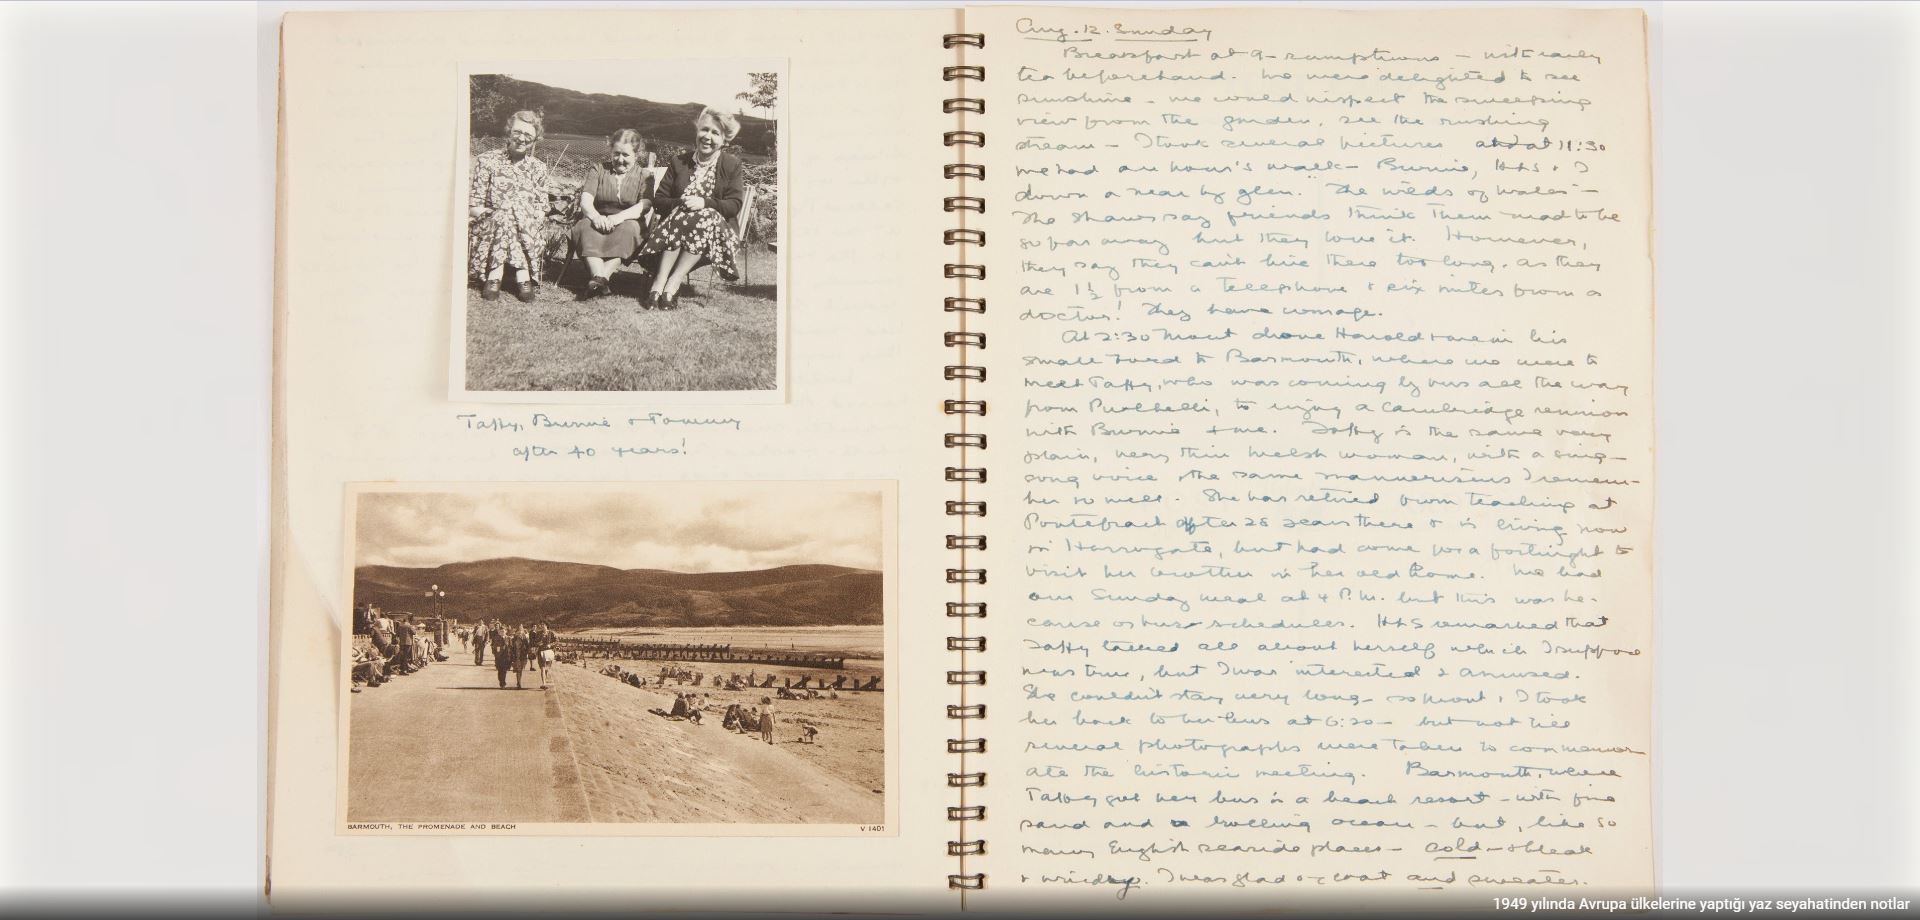 Taffy, Bunnie & Tommy
after 40 years!
BARMOUTH, THE PROMENADE AND BEACH
V 1401
Aug. 12. Sunday
Breakfast at 9 – sumptuous – with early
tea beforehand. We were delighted to see
sunshine – we could inspect the sweeping
view from the garden, see the rushing
stream – I took several pictures and at 11:30
we had an hour's walk – Bunnie, HHS & I
down a near by glen. "The wilds of Wales" –
The Shaws say friends think them mad to be
so far away but they love it. However,
they say they can't live there too long, as they
are 1½ from a telephone & six miles from a
doctor! They have courage.
At 2:30 drove Harold & me in his
small Ford to Barmouth, where we were to
meet Taffy, who was coming by bus all the way
from Pwllheli, to enjoy a Cambridge reunion
with Bunnie & me. Taffy is the same very
plain, very thin Welsh woman, with a sing-
song voice, the same mannerisms I remem-
ber so well. She has retired from teaching at
Pontefract after 28 years there & is living now
in Harrogate, but had come for a fortnight to
visit her brother in her old home. We had
our Sunday meal at 4 P.M. but this was be-
cause of bus schedules. HHS remarked that
Taffy talked all about herself which I suppose
was true, but I was interested & amused.
She couldn't stay very long – so & I took
her back to her bus at 6:30 – but not till
several photographs were taken to commemor-
ate the historic meeting. Barmouth, where
Taffy got her bus is a beach resort – with fine
sand and a rolling ocean – but, like so
many English seaside places – cold – & bleak
& windy. I was glad of coat and sweater.
1949 yılında Avrupa ülkelerine yaptığı yaz seyahatinden notlar